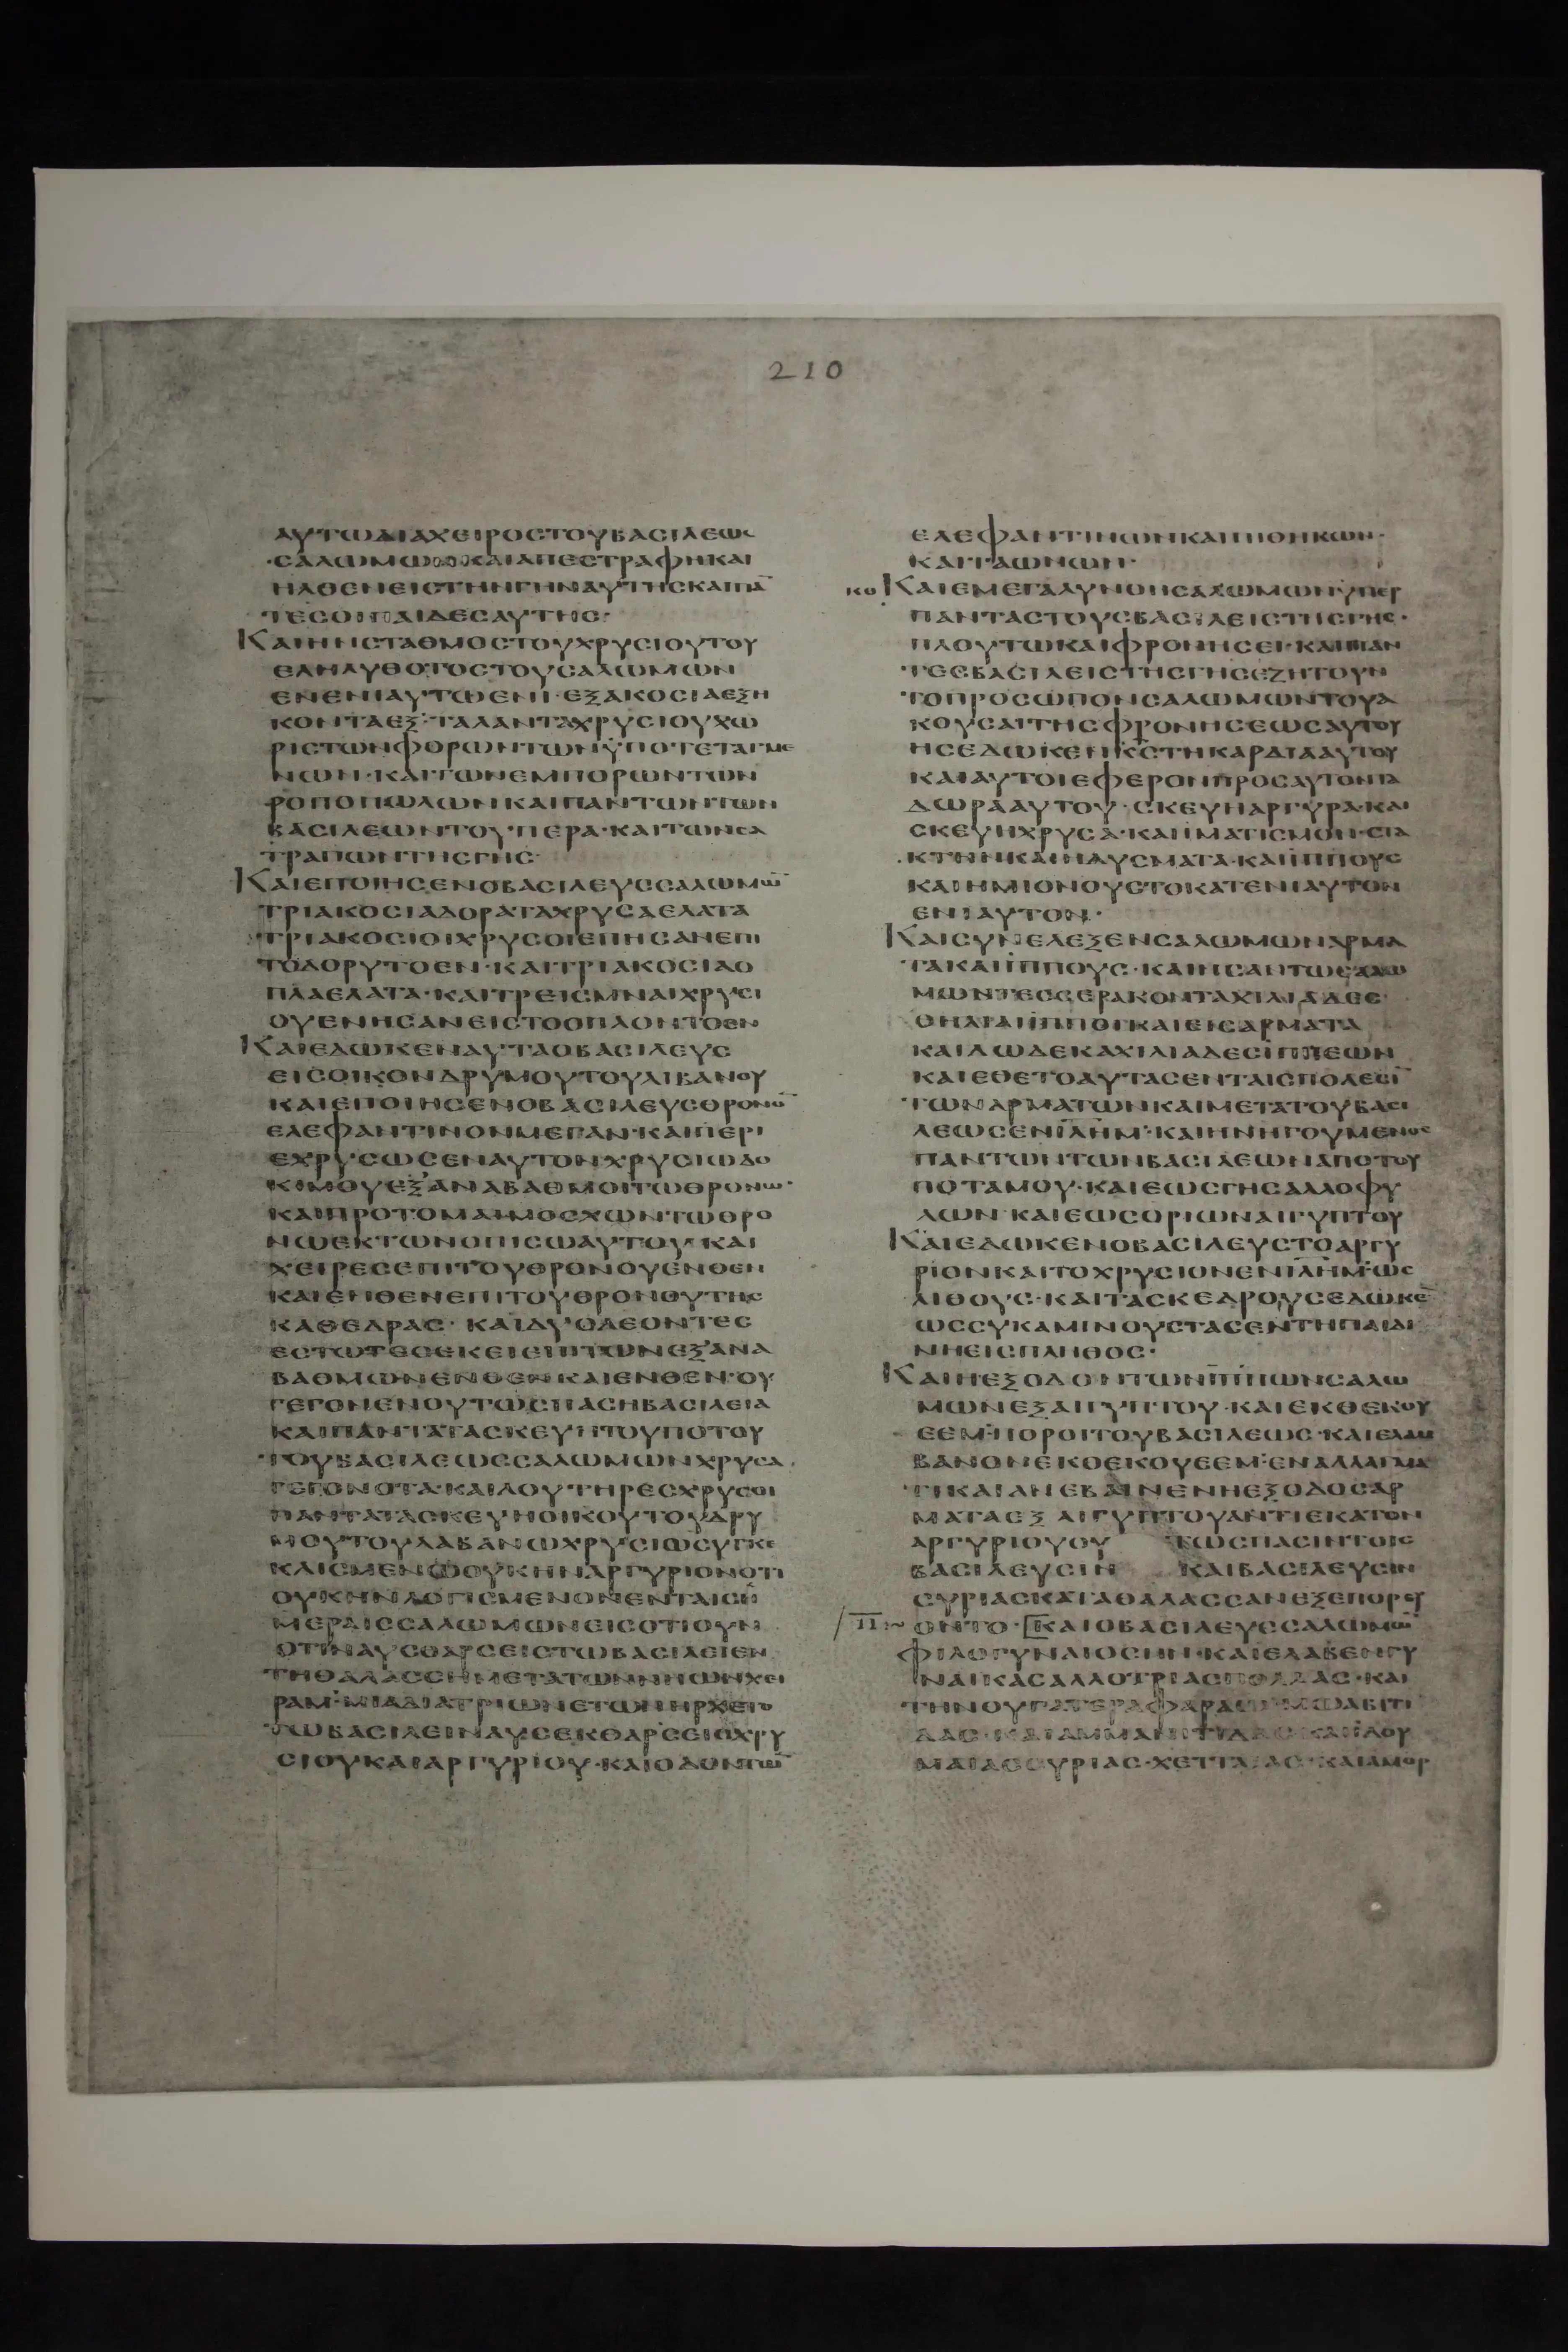 210
ΑΥΤΩΔΙΑΧΕΙΡΟCΤΟΥΒΑCΙΛΕΩC
CΑΛΩΜΩΝΚΑΙΑΠΕCΤΡΑΦΗΚΑΙ
ΗΛΘΕΝΕΙCΤΗΝΓΗΝΑΥΤΗCΚΑΙΠΑ̅
ΤΕCΟΙΠΑΙΔΕCΑΥΤΗC·
ΚΑΙΗΝCΤΑΘΜΟCΤΟΥΧΡΥCΙΟΥΤΟΥ
ΕΛΗΛΥΘΟΤΟCΤΟΥCΑΛΩΜΩΝ
ΕΝΕΝΙΑΥΤΩΕΝΙ·ΕΞΑΚΟCΙΑΕΞΗ
ΚΟΝΤΑΕΞ·ΤΑΛΑΝΤΑΧΡΥCΙΟΥΧΩ
ΡΙCΤΩΝΦΟΡΩΝΤΩΝΫΠΟΤΕΤΑΓΜΕ
ΝΩΝ·ΚΑΙΤΩΝΕΜΠΟΡΩΝΤΩΝ
ΡΟΠΟΠΩΛΩΝΚΑΙΠΑΝΤΩΝΤΩΝ
ΒΑCΙΛΕΩΝΤΟΥΠΕΡΑ·ΚΑΙΤΩΝCΑ
ΤΡΑΠΩΝΤΗCΓΗC·
ΚΑΙΕΠΟΙΗCΕΝΟΒΑCΙΛΕΥCCΑΛΩΜΩ̅
ΤΡΙΑΚΟCΙΑΔΟΡΑΤΑΧΡΥCΑΕΛΑΤΑ
ΤΡΙΑΚΟCΙΟΙΧΡΥCΟΙΕΠΗCΑΝΕΠΙ
ΤΟΔΟΡΥΤΟΕΝ·ΚΑΙΤΡΙΑΚΟCΙΑΟ
ΠΛΑΕΛΑΤΑ·ΚΑΙΤΡΕΙCΜΝΑΙΧΡΥCΙ
ΟΥΕΝΗCΑΝΕΙCΤΟΟΠΛΟΝΤΟΕΝ
ΚΑΙΕΔΩΚΕΝΑΥΤΑΟΒΑCΙΛΕΥC
ΕΙCΟΙΚΟΝΔΡΥΜΟΥΤΟΥΛΙΒΑΝΟΥ
ΚΑΙΕΠΟΙΗCΕΝΟΒΑCΙΛΕΥCΘΡΟΝΟ̅
ΕΛΕΦΑΝΤΙΝΟΝΜΕΓΑΝ·ΚΑΙΠΕΡΙ
ΕΧΡΥCΩCΕΝΑΥΤΟΝΧΡΥCΙΩΔΟ
ΚΙΜΟΥΕΞΑΝΑΒΑΘΜΟΙΤΩΘΡΟΝΩ·
ΚΑΙΠΡΟΤΟΜΑΙΜΟCΧΩΝΤΩΘΡΟ
ΝΩΕΚΤΩΝΟΠΙCΩΑΥΤΟΥ·ΚΑΙ
ΧΕΙΡΕCΕΠΙΤΟΥΘΡΟΝΟΥΕΝΘΕΝ
ΚΑΙΕΝΘΕΝΕΠΙΤΟΥΘΡΟΝΟΥΤΗC
ΚΑΘΕΔΡΑC·ΚΑΙΔΥΟΛΕΟΝΤΕC
ΕCΤΩΤΕCΕΚΕΙΕΠΙΤΩΝΕΞΑΝΑ
ΒΑΘΜΩΝΕΝΘΕΝΚΑΙΕΝΘΕΝ·ΟΥ
ΓΕΓΟΝΕΝΟΥΤΩCΠΑCΗΒΑCΙΛΕΙΑ
ΚΑΙΠΑΝΤΑΤΑCΚΕΥΗΤΟΥΠΟΤΟΥ
ΤΟΥΒΑCΙΛΕΩCCΑΛΩΜΩΝΧΡΥCΑ
ΓΕΓΟΝΟΤΑ·ΚΑΙΛΟΥΤΗΡΕCΧΡΥCΟΙ
ΠΑΝΤΑΤΑCΚΕΥΗΟΙΚΟΥΤΟΥΔΡΥ
ΜΟΥΤΟΥΛΑΒΑΝΩΧΡΥCΙΩCΥΓΚΕ
ΚΛΙCΜΕΝΩΟΥΚΗΝΑΡΓΥΡΙΟΝΟΤΙ
ΟΥΚΗΝΛΟΓΙCΜΕΝΟΝΕΝΤΑΙCΗ
ΜΕΡΑΙCCΑΛΩΜΩΝΕΙCΟΤΙΟΥΝ
ΟΤΙΝΑΥCΘΑΡCΕΙCΤΩΒΑCΙΛΕΙΕΝ
ΤΗΘΑΛΑCCΗΜΕΤΑΤΩΝΝΗΩΝΧΕΙ
ΡΑΜ·ΜΙΑΔΙΑΤΡΙΩΝΕΤΩΝΗΡΧΕΤΟ
ΤΩΒΑCΙΛΕΙΝΑΥCΕΚΘΑΡCΕΙCΧΡΥ
CΙΟΥΚΑΙΑΡΓΥΡΙΟΥ·ΚΑΙΟΔΟΝΤΩ̅
ΕΛΕΦΑΝΤΙΝΩΝΚΑΙΠΙΘΗΚΩΝ·
ΚΑΙΤΑΩΝΩΝ·
ΚΑΙΕΜΕΓΑΛΥΝΘΗCΑΛΩΜΩΝΫΠΕΡ
ΠΑΝΤΑCΤΟΥCΒΑCΙΛΕΙCΤΗCΓΗC·
ΠΛΟΥΤΩΚΑΙΦΡΟΝΗCΕΙ·ΚΑΙΠΑΝ
ΤΕCΒΑCΙΛΕΙCΤΗCΓΗCΕΖΗΤΟΥΝ
ΤΟΠΡΟCΩΠΟΝCΑΛΩΜΩΝΤΟΥΑ
ΚΟΥCΑΙΤΗCΦΡΟΝΗCΕΩCΑΥΤΟΥ
ΗCΕΔΩΚΕΝΚ̅C̅ΤΗΚΑΡΔΙΑΑΥΤΟΥ
ΚΑΙΑΥΤΟΙΕΦΕΡΟΝΠΡΟCΑΥΤΟΝΤΑ
ΔΩΡΑΑΥΤΟΥ·CΚΕΥΗΑΡΓΥΡΑ·ΚΑΙ
CΚΕΥΗΧΡΥCΑ·ΚΑΙΪΜΑΤΙCΜΟΝ·CΤΑ
ΚΤΗΝΚΑΙΗΔΥCΜΑΤΑ·ΚΑΙΪΠΠΟΥC
ΚΑΙΗΜΙΟΝΟΥCΤΟΚΑΤΕΝΙΑΥΤΟΝ
ΕΝΙΑΥΤΟΝ·
ΚΑΙCΥΝΕΛΕΞΕΝCΑΛΩΜΩΝΑΡΜΑ
ΤΑΚΑΙΪΠΠΟΥC·ΚΑΙΗCΑΝΤΩCΑΛΩ
ΜΩΝΤΕCCΕΡΑΚΟΝΤΑΧΙΛΙΑΔΕC·
ΘΗΛΙΑΙΪΠΠΟΙΚΑΙΕΙCΑΡΜΑΤΑ
ΚΑΙΔΩΔΕΚΑΧΙΛΙΑΔΕCΙΠΠΕΩΝ
ΚΑΙΕΘΕΤΟΑΥΤΑCΕΝΤΑΙCΠΟΛΕCΙ̅
ΤΩΝΑΡΜΑΤΩΝΚΑΙΜΕΤΑΤΟΥΒΑCΙ
ΛΕΩCΕΝΙ̅Λ̅Η̅Μ̅·ΚΑΙΗΝΗΓΟΥΜΕΝΟC
ΠΑΝΤΩΝΤΩΝΒΑCΙΛΕΩΝΑΠΟΤΟΥ
ΠΟΤΑΜΟΥ·ΚΑΙΕΩCΓΗCΑΛΛΟΦΥ
ΛΩΝ·ΚΑΙΕΩCΟΡΙΩΝΑΙΓΥΠΤΟΥ
ΚΑΙΕΔΩΚΕΝΟΒΑCΙΛΕΥCΤΟΑΡΓΥ
ΡΙΟΝΚΑΙΤΟΧΡΥCΙΟΝΕΝΙ̅Λ̅Η̅Μ̅·ΩC
ΛΙΘΟΥC·ΚΑΙΤΑCΚΕΔΡΟΥCΕΔΩΚΕ̅
ΩCCΥΚΑΜΙΝΟΥCΤΑCΕΝΤΗΠΑΙΔΙ
ΝΗΕΙCΠΛΗΘΟC·
ΚΑΙΗΕΞΟΔΟΝΤΩΝΪΠΠΩΝCΑΛΩ
ΜΩΝΕΞΑΙΓΥΠΤΟΥ·ΚΑΙΕΚΘΕΚΟΥ
ΕΕΜΠΟΡΟΙΤΟΥΒΑCΙΛΕΩC·ΚΑΙΕΛΑΜ
ΒΑΝΟΝΕΚΘΕΚΟΥΕΕΜ·ΕΝΑΛΛΑΓΜΑ
ΤΙΚΑΙΑΝΕΒΑΙΝΕΝΗΕΞΟΔΟCΑΡ
ΜΑΤΑΕΞ ΑΙΓΥΠΤΟΥΑΝΤΙΕΚΑΤΟΝ
ΑΡΓΥΡΙΟΥΟΥ ΤΩCΠΑCΙΝΤΟΙC
ΒΑCΙΛΕΥCΙΝ ΚΑΙΒΑCΙΛΕΥCΙΝ
CΥΡΙΑCΚΑΤΑΘΑΛΑCCΑΝΕΞΕΠΟΡΕΥ
ΟΝΤΟ·ΚΑΙΟΒΑCΙΛΕΥCCΑΛΩΜΩ̅
ΦΙΛΟΓΥΝΑΙΟCΗΝ·ΚΑΙΕΛΑΒΕΝΓΥ
ΝΑΙΚΑCΑΛΛΟΤΡΙΑCΠΟΛΛΑC·ΚΑΙ
ΤΗΝΘΥΓΑΤΕΡΑΦΑΡΑΩ·ΜΩΑΒΙΤΙ
ΔΑC·ΚΑΙΑΜΜΑΝΙΤΙΔΑC·ΚΑΙΪΔΟΥ
ΜΑΙΑCCΥΡΙΑC·ΧΕΤΤΑΙΑC·ΚΑΙΑΜΟΡ